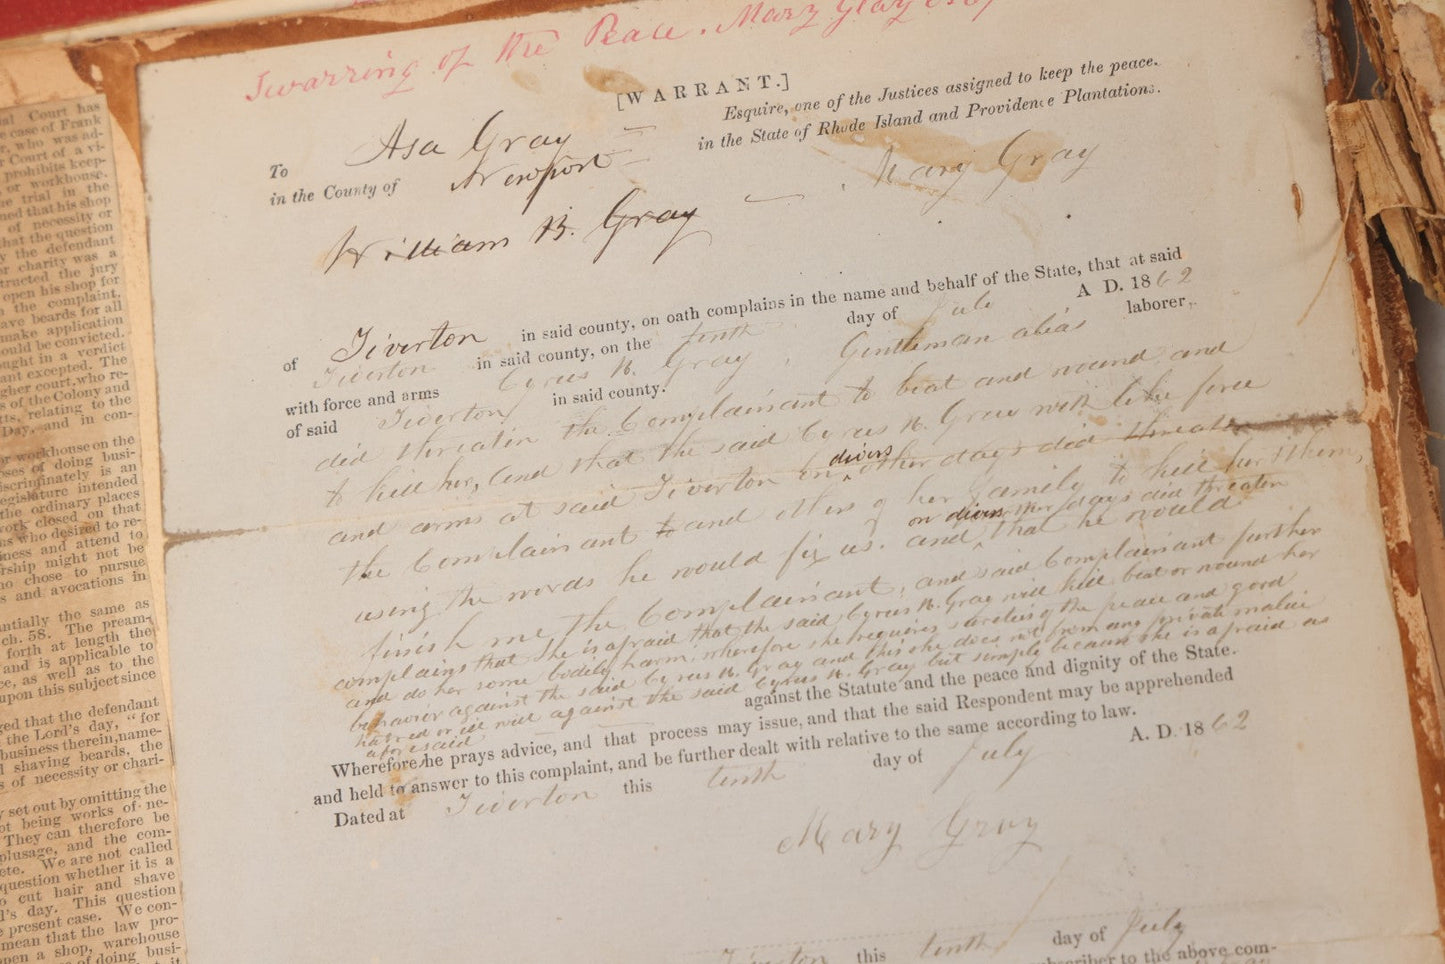 Swarring of the Peace. Mary Gray
[WARRANT.]
To Asa Gray Esquire, one of the Justices assigned to keep the peace.
in the County of Newport in the State of Rhode Island and Providence Plantations.
William B. Gray Mary Gray
of Tiverton in said county, on oath complains in the name and behalf of the State, that at said
Tiverton in said county, on the tenth day of July A D. 1862
with force and arms Cyrus N. Gray, Gentleman alias laborer,
of said Tiverton in said county.
did threaten the Complainant to beat and wound and
to kill her, and that the said Cyrus N. Gray with like force
and arms at said Tiverton on divers other days did threaten
the Complainant to and others of her family to kill her & them,
using the words he would fix us. and on divers other days did threaten that he would
finish me the Complainant, and said Complainant further
complains that she is afraid that the said Cyrus N. Gray will kill beat or wound her
and do her some bodily harm, wherefore she requires sureties of the peace and good
behavior against the said Cyrus N. Gray and this she does not from any private malice
hatred or ill will against the said Cyrus N. Gray but simple because she is afraid as
aforesaid
against the Statute and the peace and dignity of the State.
Wherefore he prays advice, and that process may issue, and that the said Respondent may be apprehended
and held to answer to this complaint, and be further dealt with relative to the same according to law.
Dated at Tiverton this tenth day of July A. D. 1862
Mary Gray
Tiverton this tenth day of July
subscriber to the above com-
ial Court has
e case of Frank
r, who was ad-
r Court of a vi-
prohibits keep-
or workhouse.
e trial in the
ned that his shop
of necessity or
hat the question
y the defendant
or charity was a
tructed the jury
open his shop for
n the complaint,
ave beards for all
make application
ould be convicted.
ought in a verdict
ant excepted. The
gher court, who re-
s of the Colony and
tts, relating to the
Day, and in con-
or workhouse on the
oses of doing busi-
iscriminately is an
egislature intended
the ordinary places
work closed on that
ns who desired to re-
iness and attend to
rship might not be
ho chose to pursue
s and avocations in
antially the same as
ch. 58. The pream-
forth at length the
and is applicable to
ce, as well as to the
upon this subject since
ged that the defendant
the Lord's day, "for
business therein, name-
d shaving beards, the
s of necessity or chari-
y set out by omitting the
ot being works of ne-
They can therefore be
plusage, and the com-
ete. We are not called
question whether it is a
o cut hair and shave
l's day. This question
e present case. We con-
mean that the law pro-
pen a shop, warehouse
of doing busi-